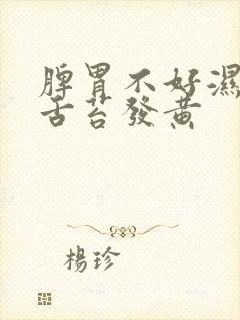 脾胃不好濕
舌苔發黃
楊珍